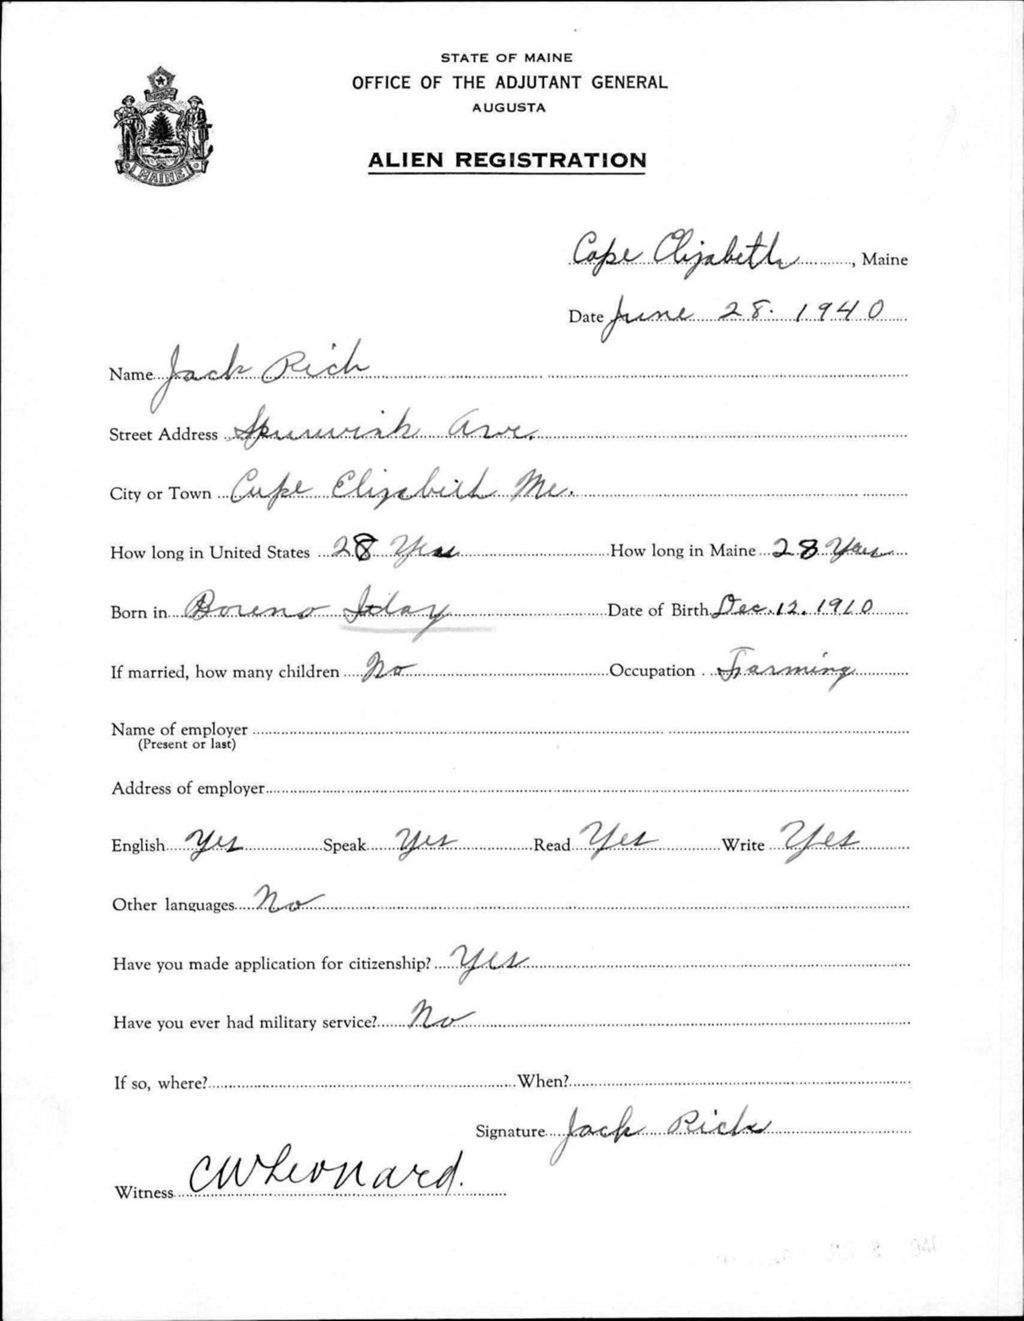 STATE OF MAINE
OFFICE OF THE ADJUTANT GENERAL
AUGUSTA
ALIEN REGISTRATION
MAINE
Cape Elizabeth, Maine
Date June 28. 1940
Name Jack Rich
Street Address Spurwink Ave.
City or Town Cape Elizabeth Me.
How long in United States 28 Years How long in Maine 28 Years
Born in Boreno Itlay Date of Birth Dec. 12. 1910
If married, how many children No Occupation Farming
Name of employer
(Present or last)
Address of employer
English Yes Speak Yes Read Yes Write Yes
Other languages No
Have you made application for citizenship? Yes
Have you ever had military service? No
If so, where? When?
Signature Jack Rich
Witness CW Leonard.